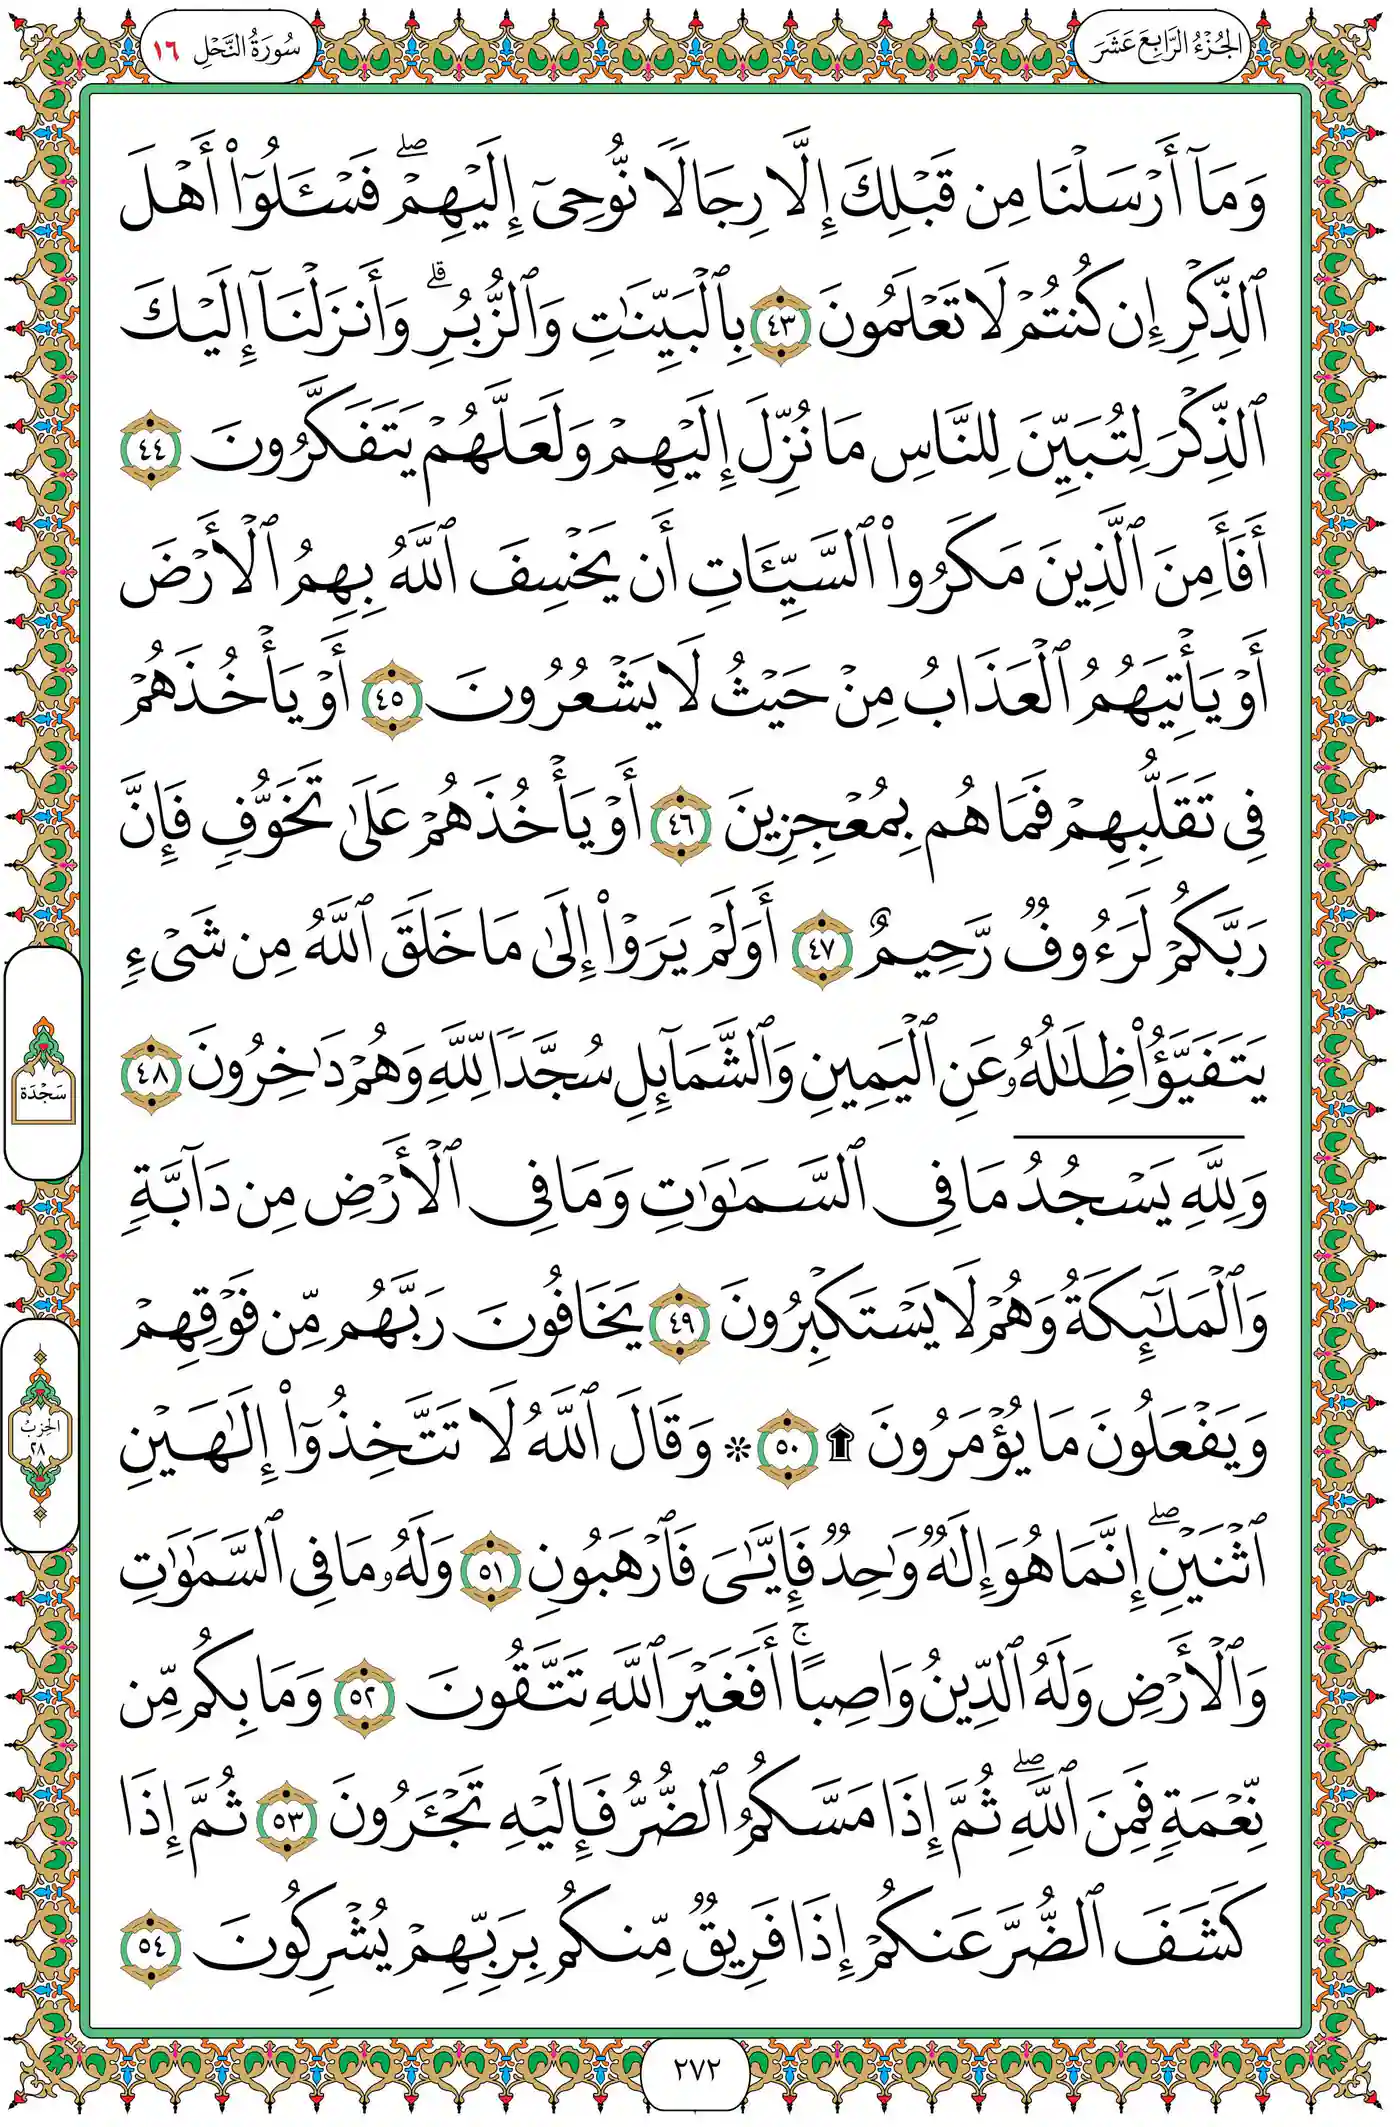 الجُزْءُ الرَّابِعَ عَشَرَ
سُورَةُ النَّحْلِ ١٦
وَمَآ أَرۡسَلۡنَا مِن قَبۡلِكَ إِلَّا رِجَالٗا نُّوحِيٓ إِلَيۡهِمۡۖ فَسۡـَٔلُوٓاْ أَهۡلَ
ٱلذِّكۡرِ إِن كُنتُمۡ لَا تَعۡلَمُونَ ٤٣ بِٱلۡبَيِّنَٰتِ وَٱلزُّبُرِۗ وَأَنزَلۡنَآ إِلَيۡكَ
ٱلذِّكۡرَ لِتُبَيِّنَ لِلنَّاسِ مَا نُزِّلَ إِلَيۡهِمۡ وَلَعَلَّهُمۡ يَتَفَكَّرُونَ ٤٤
أَفَأَمِنَ ٱلَّذِينَ مَكَرُواْ ٱلسَّيِّـَٔاتِ أَن يَخۡسِفَ ٱللَّهُ بِهِمُ ٱلۡأَرۡضَ
أَوۡ يَأۡتِيَهُمُ ٱلۡعَذَابُ مِنۡ حَيۡثُ لَا يَشۡعُرُونَ ٤٥ أَوۡ يَأۡخُذَهُمۡ
فِي تَقَلُّبِهِمۡ فَمَا هُم بِمُعۡجِزِينَ ٤٦ أَوۡ يَأۡخُذَهُمۡ عَلَىٰ تَخَوُّفٖ فَإِنَّ
رَبَّكُمۡ لَرَءُوفٞ رَّحِيمٌ ٤٧ أَوَلَمۡ يَرَوۡاْ إِلَىٰ مَا خَلَقَ ٱللَّهُ مِن شَيۡءٖ
يَتَفَيَّؤُاْ ظِلَٰلُهُۥ عَنِ ٱلۡيَمِينِ وَٱلشَّمَآئِلِ سُجَّدٗا لِّلَّهِ وَهُمۡ دَٰخِرُونَ ٤٨
وَلِلَّهِۤ يَسۡجُدُۤ مَا فِي ٱلسَّمَٰوَٰتِ وَمَا فِي ٱلۡأَرۡضِ مِن دَآبَّةٖ
وَٱلۡمَلَٰٓئِكَةُ وَهُمۡ لَا يَسۡتَكۡبِرُونَ ٤٩ يَخَافُونَ رَبَّهُم مِّن فَوۡقِهِمۡ
وَيَفۡعَلُونَ مَا يُؤۡمَرُونَ ۩ ٥٠ ۞ وَقَالَ ٱللَّهُ لَا تَتَّخِذُوٓاْ إِلَٰهَيۡنِ
ٱثۡنَيۡنِۖ إِنَّمَا هُوَ إِلَٰهٞ وَٰحِدٞ فَإِيَّٰيَ فَٱرۡهَبُونِ ٥١ وَلَهُۥ مَا فِي ٱلسَّمَٰوَٰتِ
وَٱلۡأَرۡضِ وَلَهُ ٱلدِّينُ وَاصِبًاۚ أَفَغَيۡرَ ٱللَّهِ تَتَّقُونَ ٥٢ وَمَا بِكُم مِّن
نِّعۡمَةٖ فَمِنَ ٱللَّهِۖ ثُمَّ إِذَا مَسَّكُمُ ٱلضُّرُّ فَإِلَيۡهِ تَجۡـَٔرُونَ ٥٣ ثُمَّ إِذَا
كَشَفَ ٱلضُّرَّ عَنكُمۡ إِذَا فَرِيقٞ مِّنكُم بِرَبِّهِمۡ يُشۡرِكُونَ ٥٤
سَجْدَة
الحِزْبُ
٢٨
٢٧٢